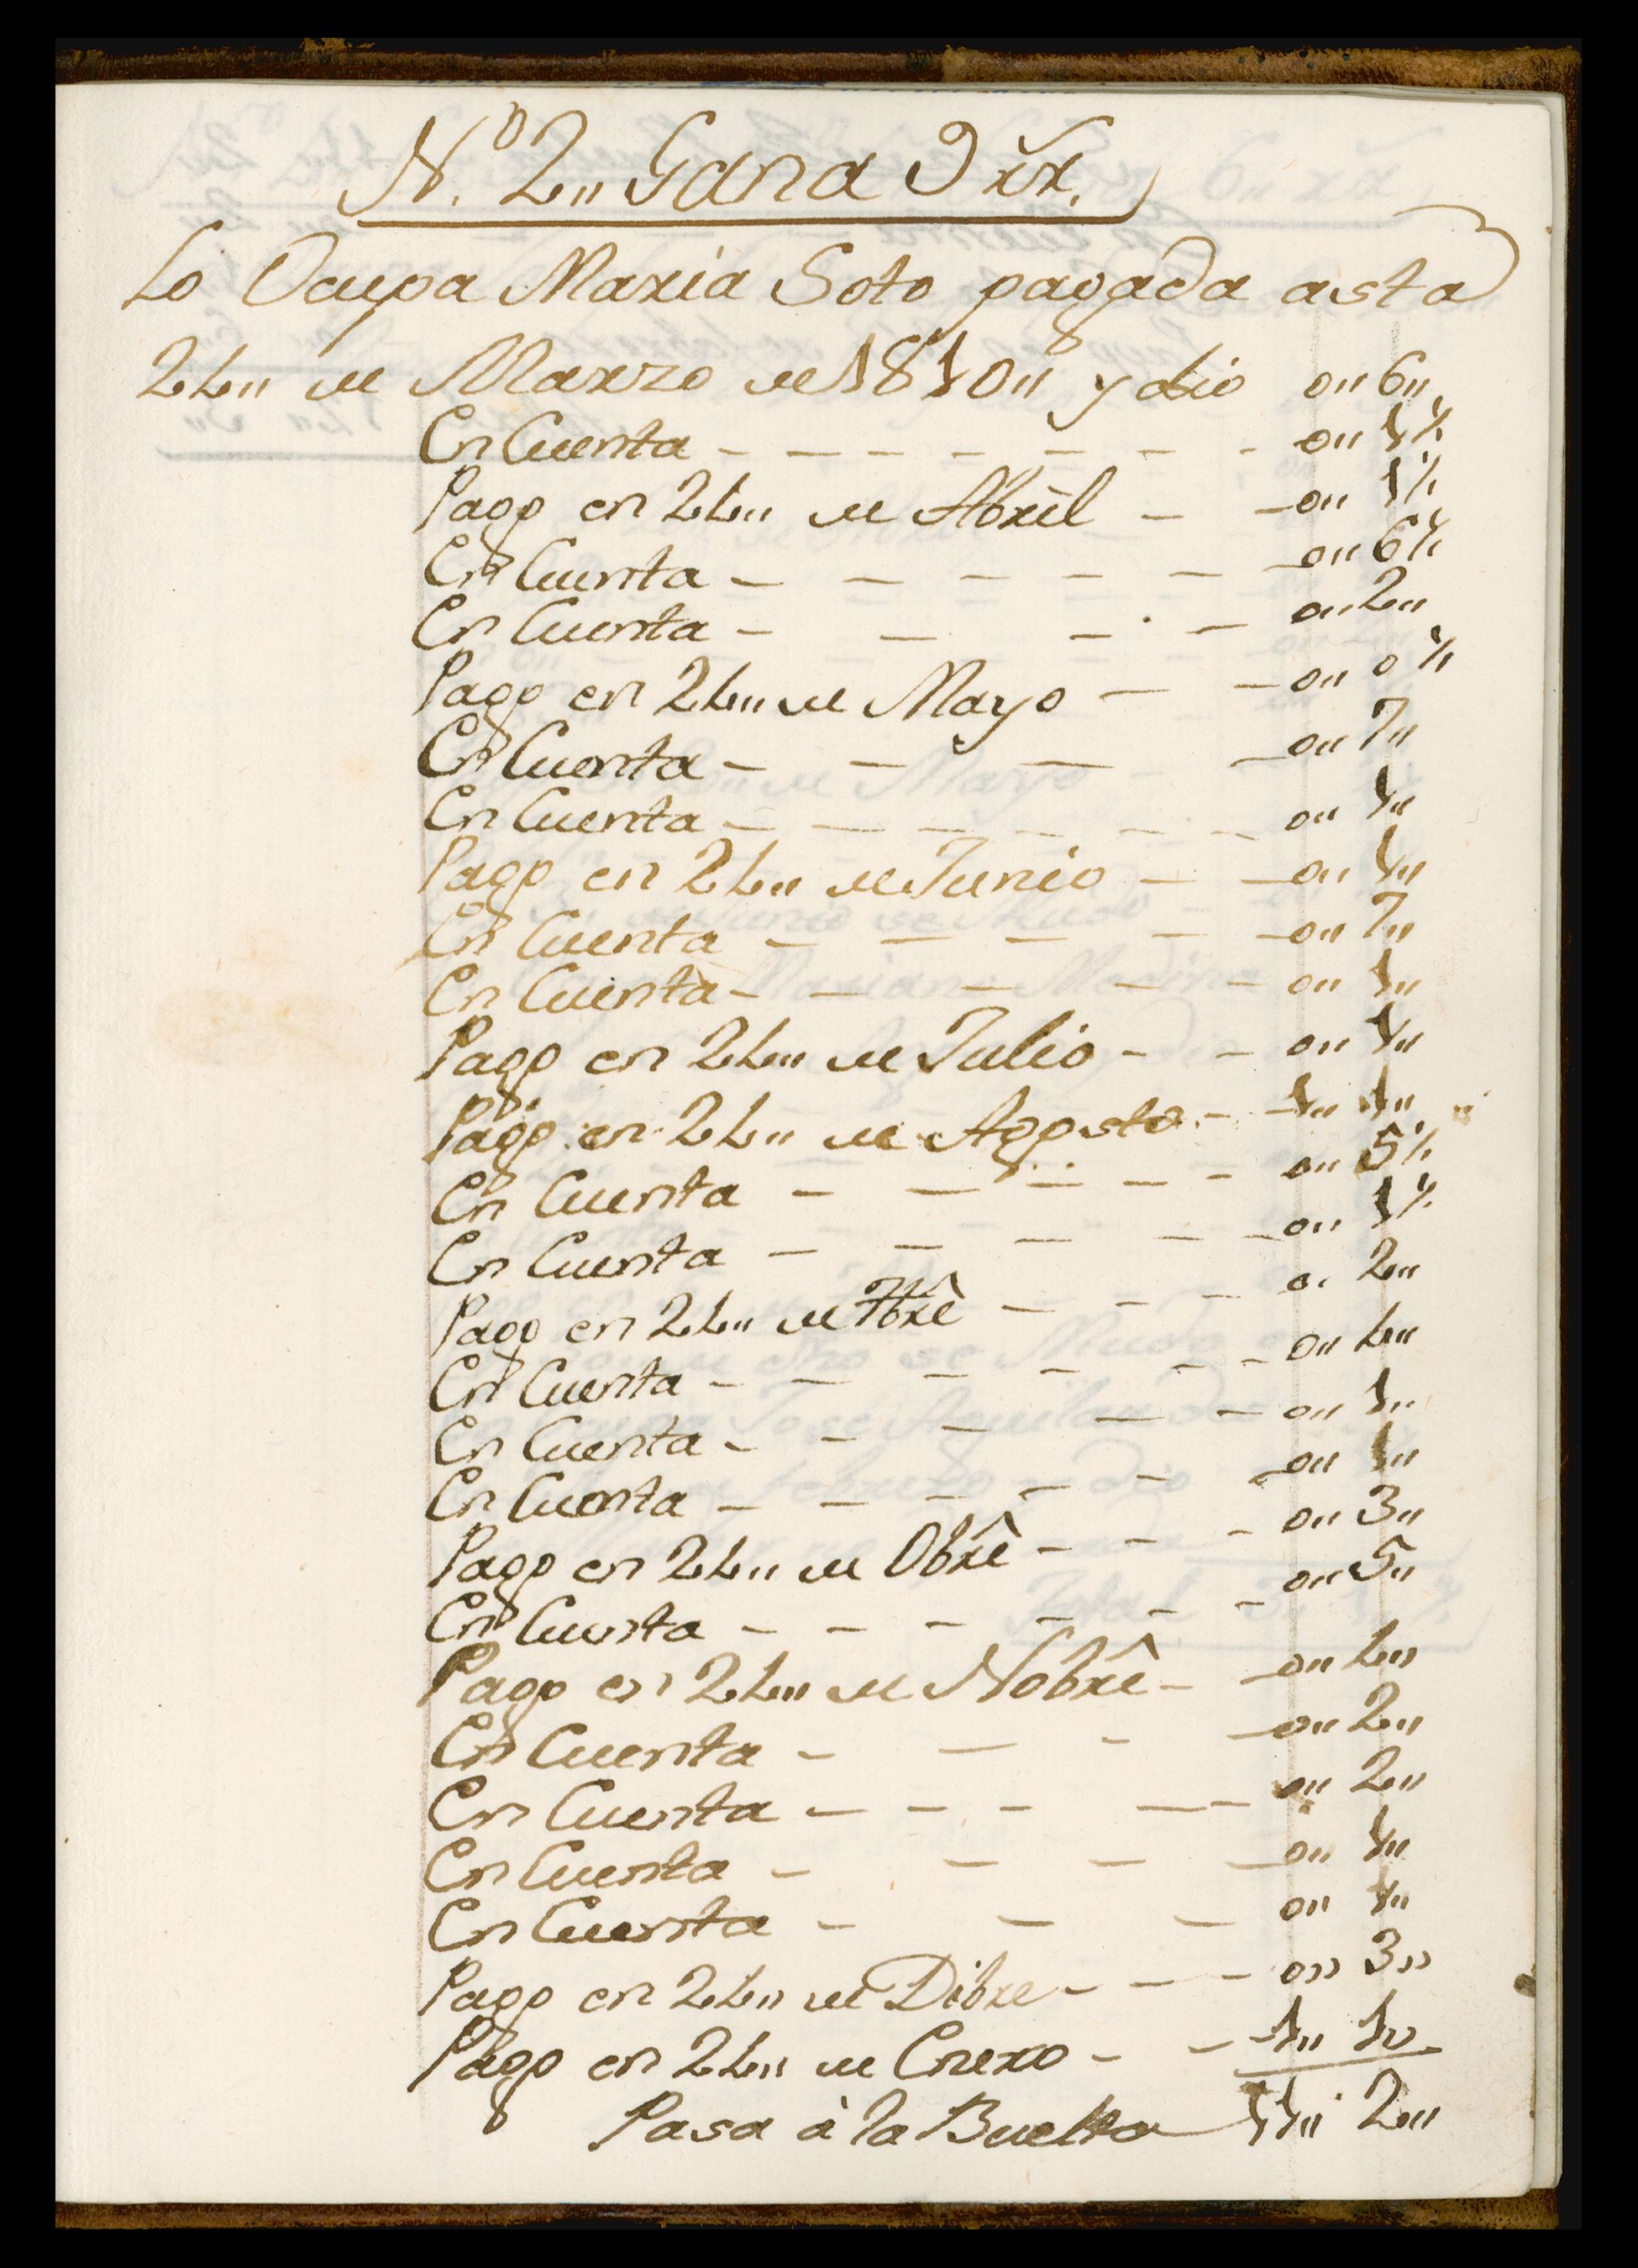 N.º 2,, Gana 9 rr.
Lo Ocupa Maria Soto pagada asta
24,, de Marzo de 1810,, y dio 0,, 6,,
En Cuenta - - - - - - - - 0,, 1½
Pago en 24,, de Abril - - 0,, 1½
En Cuenta - - - - - - 0,, 6½
En Cuenta - - - - 0,, 2,,
Pago en 24,, de Mayo - - 0,, 0½
En Cuenta - - - - 0,, 7,,
En Cuenta - - - - - - 0,, 1,,
Pago en 24,, de Junio - - 0,, 1,,
En Cuenta - - - - - 0,, 7,,
En Cuenta - - - - - 0,, 1,,
Pago en 24,, de Julio - - 0,, 1,,
Pago en 24,, de Agosto - - 1,, 1,,
En Cuenta - - - - - 0,, 5½
En Cuenta - - - - - 0,, 1½
Pago en 24,, de 7brê - - - 0,, 2,,
En Cuenta - - - - - - 0,, 4,,
En Cuenta - - - - - 0,, 1,,
En Cuenta - - - - - - 0,, 1,,
Pago en 24,, de Obrê - - - 0,, 3,,
En Cuenta - - - - - - 0,, 5,,
Pago en 24,, de Nobrê - - 0,, 4,,
En Cuenta - - - - 0,, 2,,
En Cuenta - - - - - 0,, 2,,
En Cuenta - - - - 0,, 1,,
En Cuenta - - - 0,, 1,,
Pago en 24,, de Dibre - - - 0,, 3,,
Pago en 24,, de Enero - - 1,, 1,,
Pasa à la Buelta 11,, 2,,